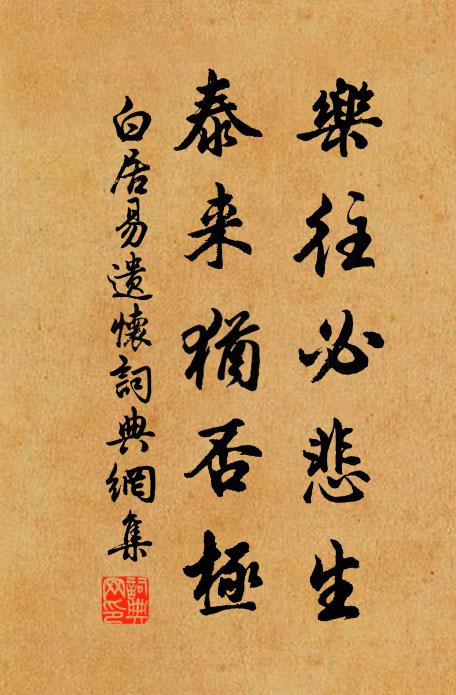 樂往必悲生
泰来猶否極
白居易遺懷詞典網集
詞典网印